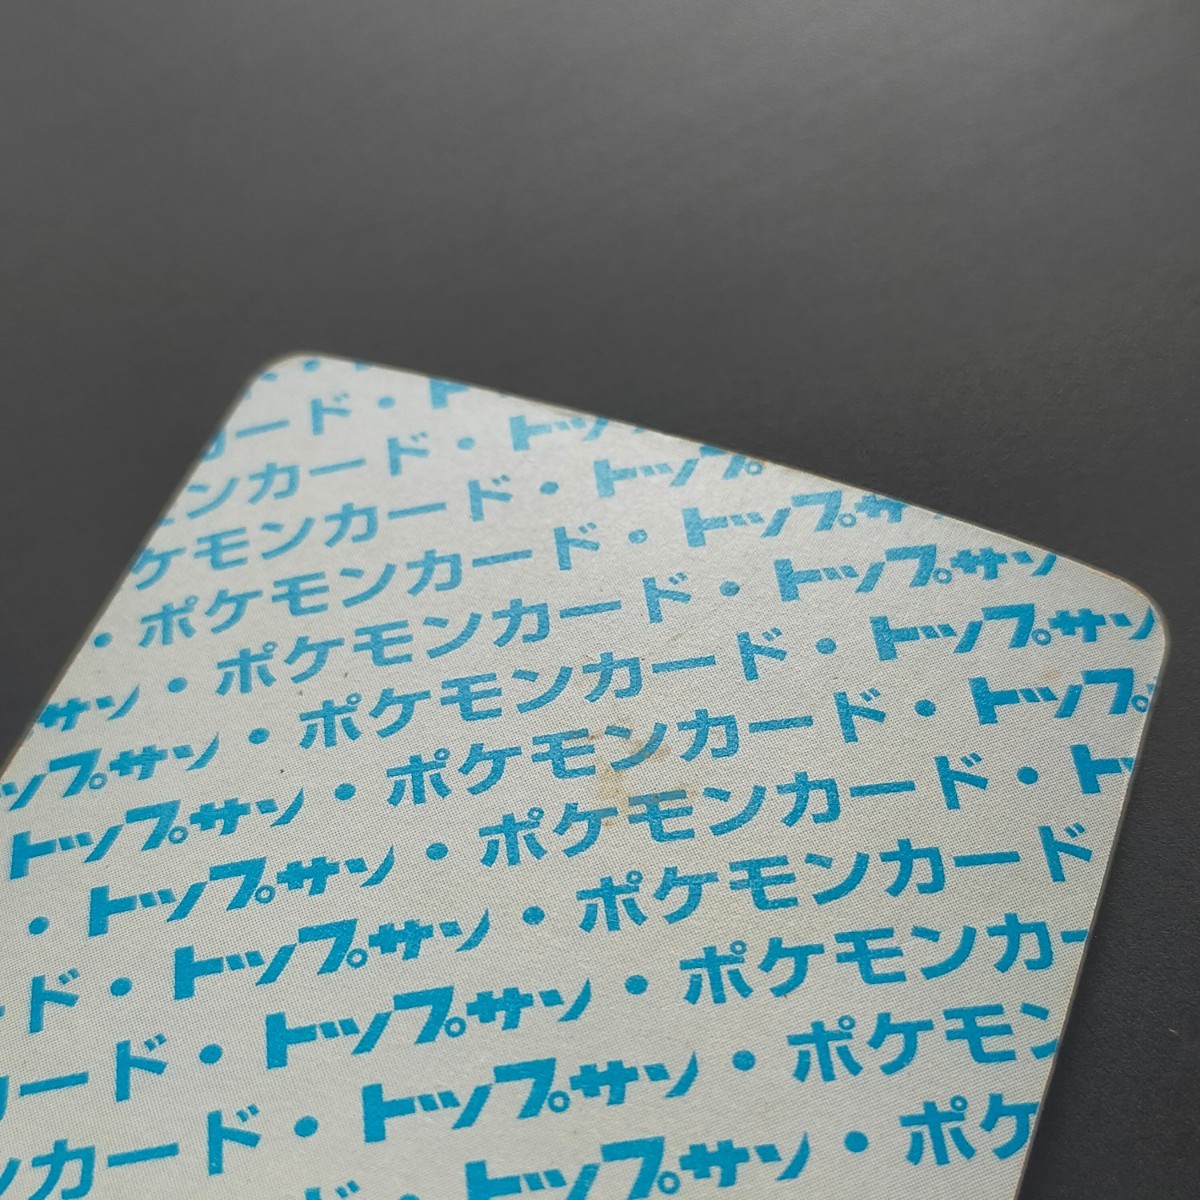 カード・ト
ンカード・トッ
ケモンカード・トップ
・ポケモンカード・トップサ
サン・ポケモンカード・トップサン
ップサン・ポケモンカード・トップサン
トップサン・ポケモンカード・トップ
・トップサン・ポケモンカード・ト
ード・トップサン・ポケモンカード
カード・トップサン・ポケモンカー
ンカード・トップサン・ポケモン
ド・トップサン・ポケ